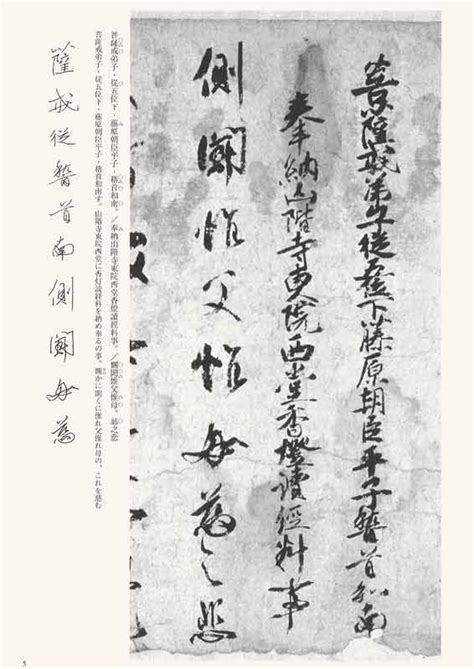 菩薩戒弟子従五位下藤原朝臣平子稽首和南
奉納山階寺東院西堂香燈讀經料事
側聞惟父惟母慈之悲
菩薩戒弟子・従五位下・藤原朝臣平子・稽首和南。／奉納山階寺東院西堂香燈讀經料事。／側聞惟父惟母、慈之悲
菩薩戒弟子・従五位下・藤原朝臣平子・稽首和南す。山階寺東院西堂に香灯読経料を納め奉るの事。側かに聞くに惟れ父惟れ母の、これを慈む
薩戒従稽首南側聞母慈
5